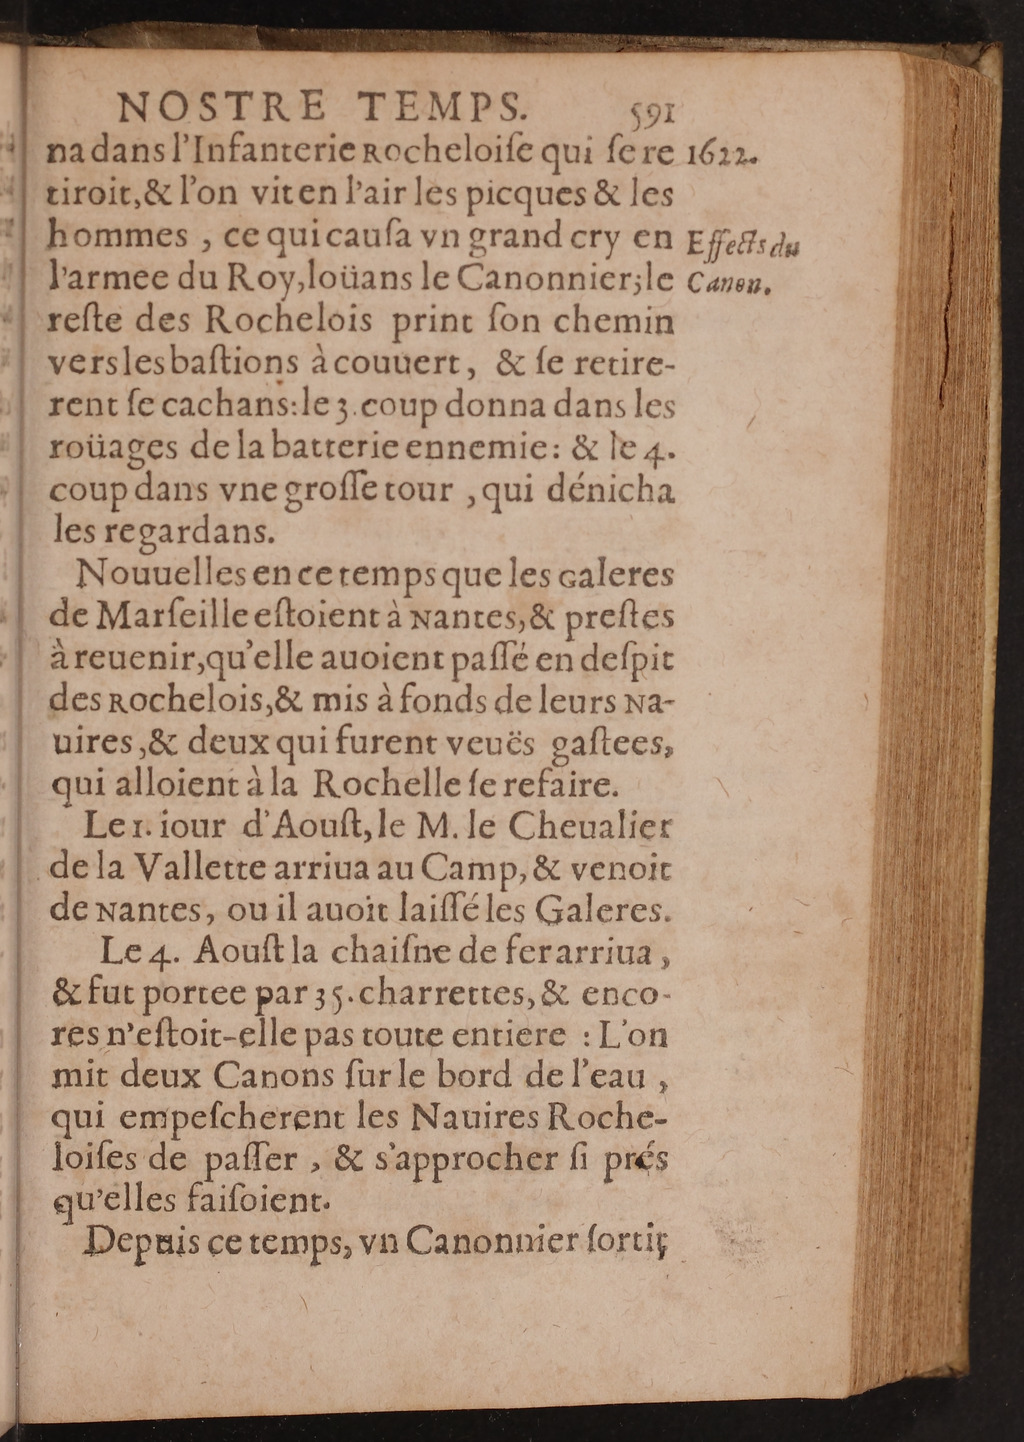 NOSTRE TEMPS. 591
na dans l'Infanterie Rocheloiſe qui ſe re 1622.
tiroit, & l'on vit en l'air les picques & les
hommes , ce qui cauſa vn grand cry en Effects du
l'armee du Roy, loüans le Canonnier; le Canon.
reſte des Rochelois print ſon chemin
vers les baſtions à couuert, & ſe retire-
rent ſe cachans: le 3. coup donna dans les
roüages de la batterie ennemie: & le 4.
coup dans vne groſſe tour , qui dénicha
les regardans.
Nouuelles en ce temps que les Galeres
de Marſeille eſtoient à Nantes, & preſtes
à reuenir, qu'elle auoient paſſé en deſpit
des Rochelois, & mis à fonds de leurs Na-
uires , & deux qui furent veuës gaſtees,
qui alloient à la Rochelle ſe refaire.
Le 1. iour d'Aouſt, le M. le Cheualier
de la Vallette arriua au Camp, & venoit
de Nantes, ou il auoit laiſſé les Galeres.
Le 4. Aouſt la chaiſne de fer arriua ,
& fut portee par 35. charrettes, & enco-
res n'eſtoit-elle pas toute entiere : L'on
mit deux Canons ſur le bord de l'eau ,
qui empeſcherent les Nauires Roche-
loiſes de paſſer , & s'approcher ſi prés
qu'elles faiſoient.
Depuis ce temps, vn Canonnier ſortit